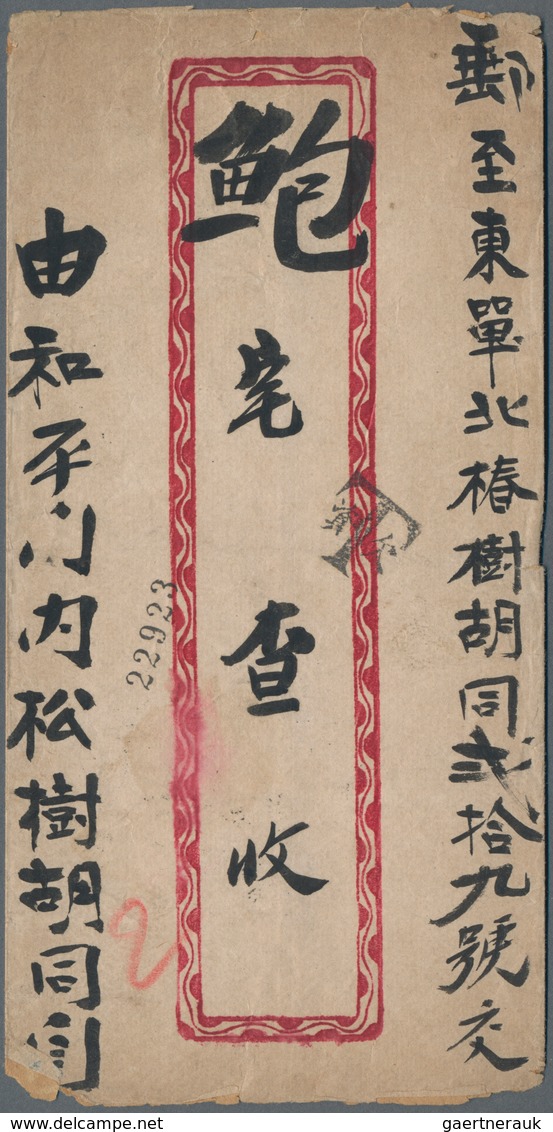 郵至東單北椿樹胡同弍拾九號交
鮑宅查收
由和平門内松樹胡同周
22923
2
gaertnerauk